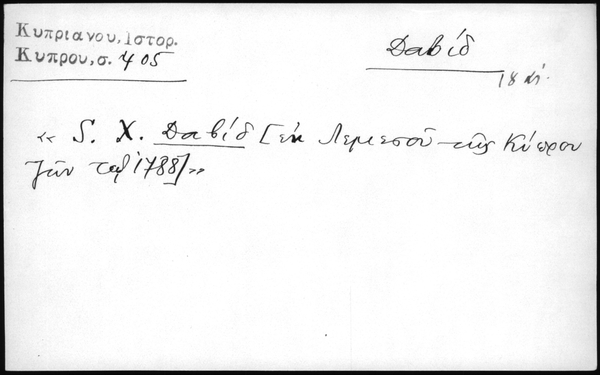 Κυπριανου, Ιστορ.
Κυπρου, σ. 405
Δαβίδ
18 αἰ.
« S. X. Δαβίδ [ἐκ Λεμεσοῦ τῆς Κύπρου
ζῶν τῷ 1788] »